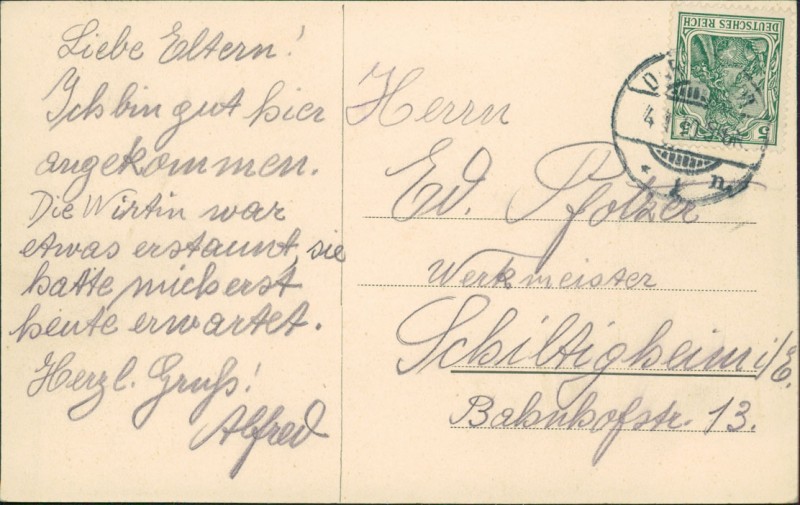 Liebe Eltern!
Ich bin gut hier
angekommen.
Die Wirtin war
etwas erstaunt, sie
hatte mich erst
heute erwartet.
Herzl. Gruß!
Alfred
Herrn
Ed. Pfolzer
Werkmeister
Schiltigheim i/E.
Bahnhofstr. 13.
DEUTSCHES REICH
5 5